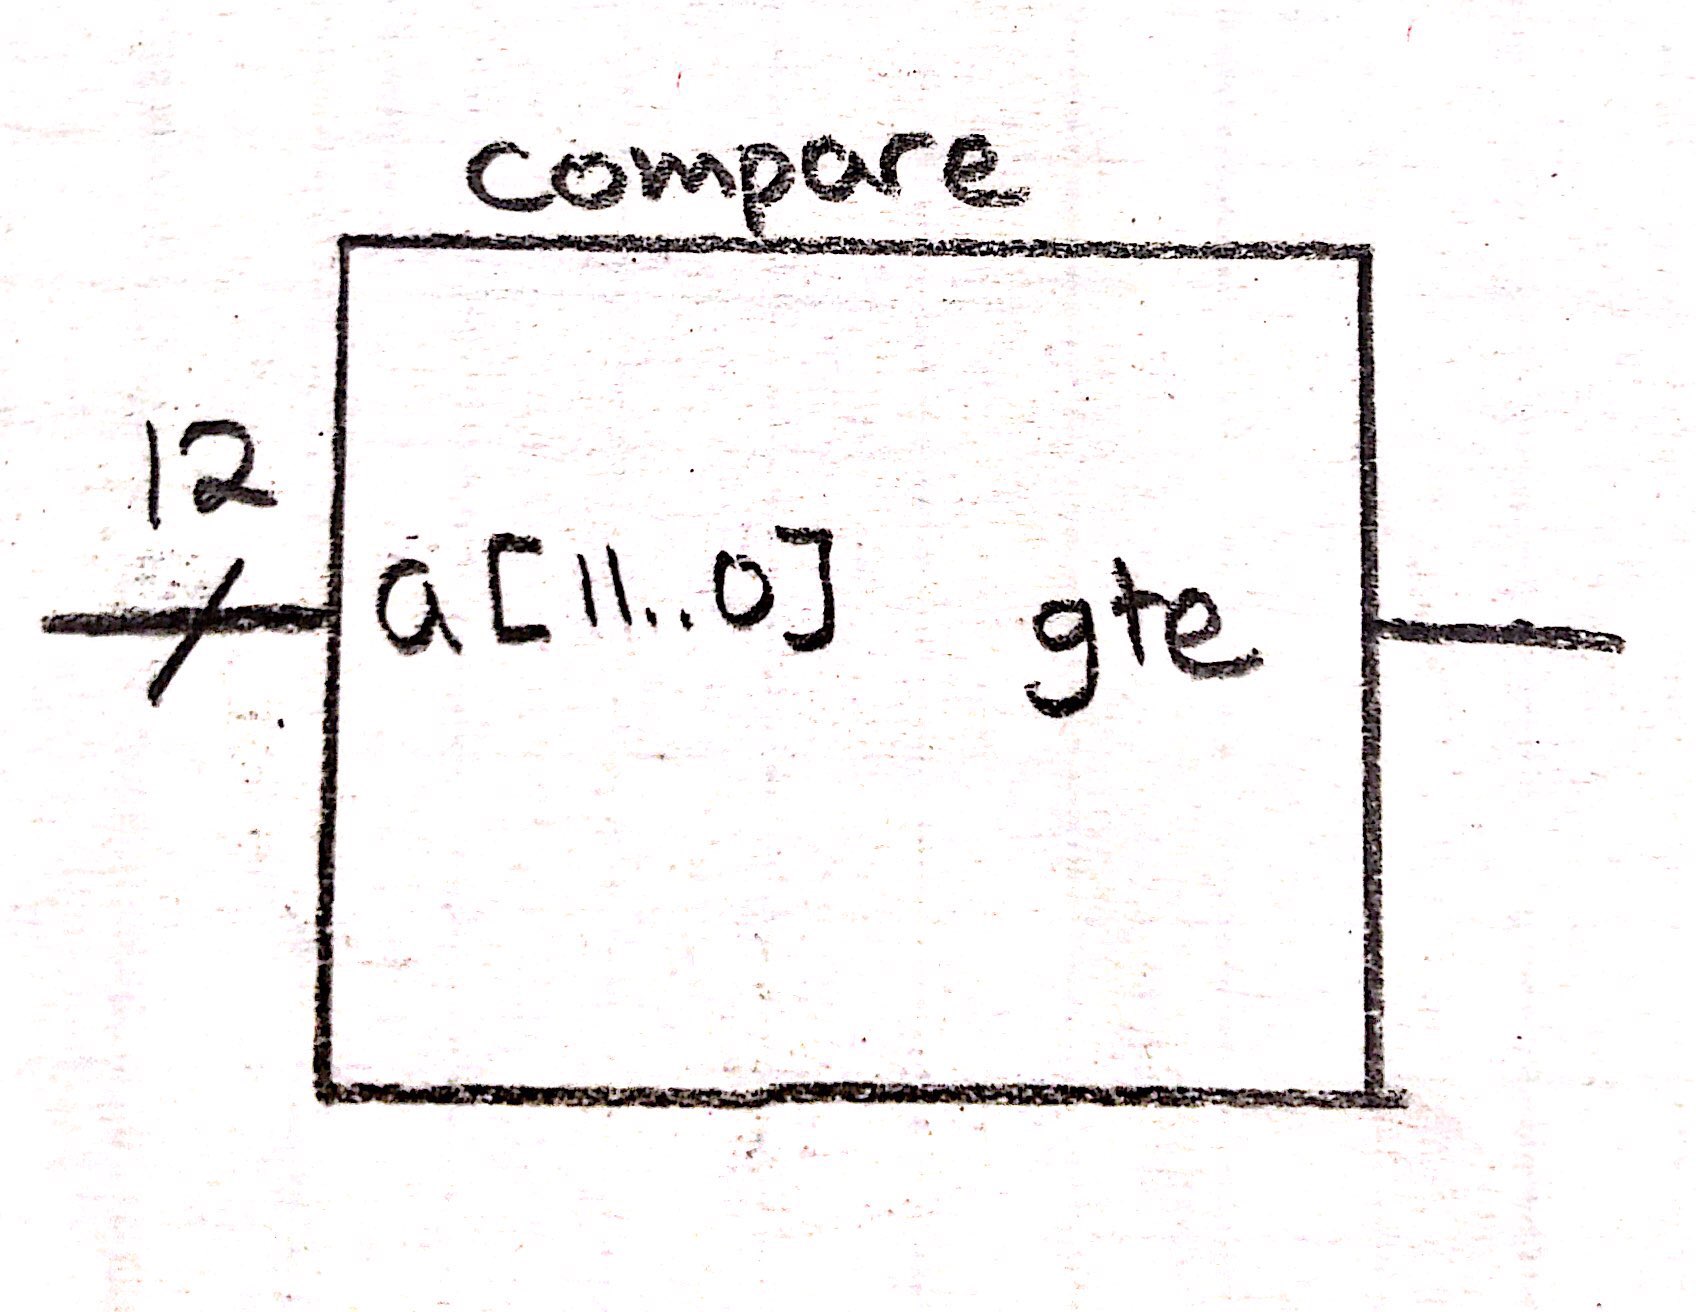 compare
12
a[11..0] gte